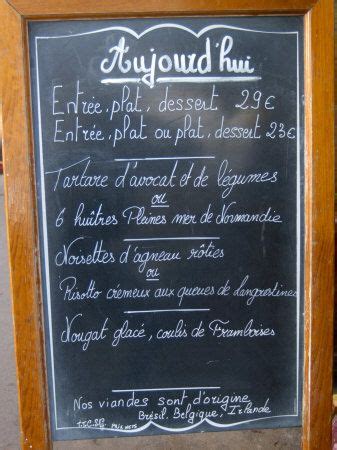 Aujourd'hui
Entrée, plat, dessert 29€
Entrée, plat ou plat, dessert 23€
Tartare d'avocat et de légumes
ou
6 huîtres Pleines mer de Normandie
Noisettes d'agneau rôties
ou
Risotto crémeux aux queues de langoustines
Nougat glacé, coulis de Framboises
Nos viandes sont d'origine
Brésil, Belgique, Irlande
PRIX NETS